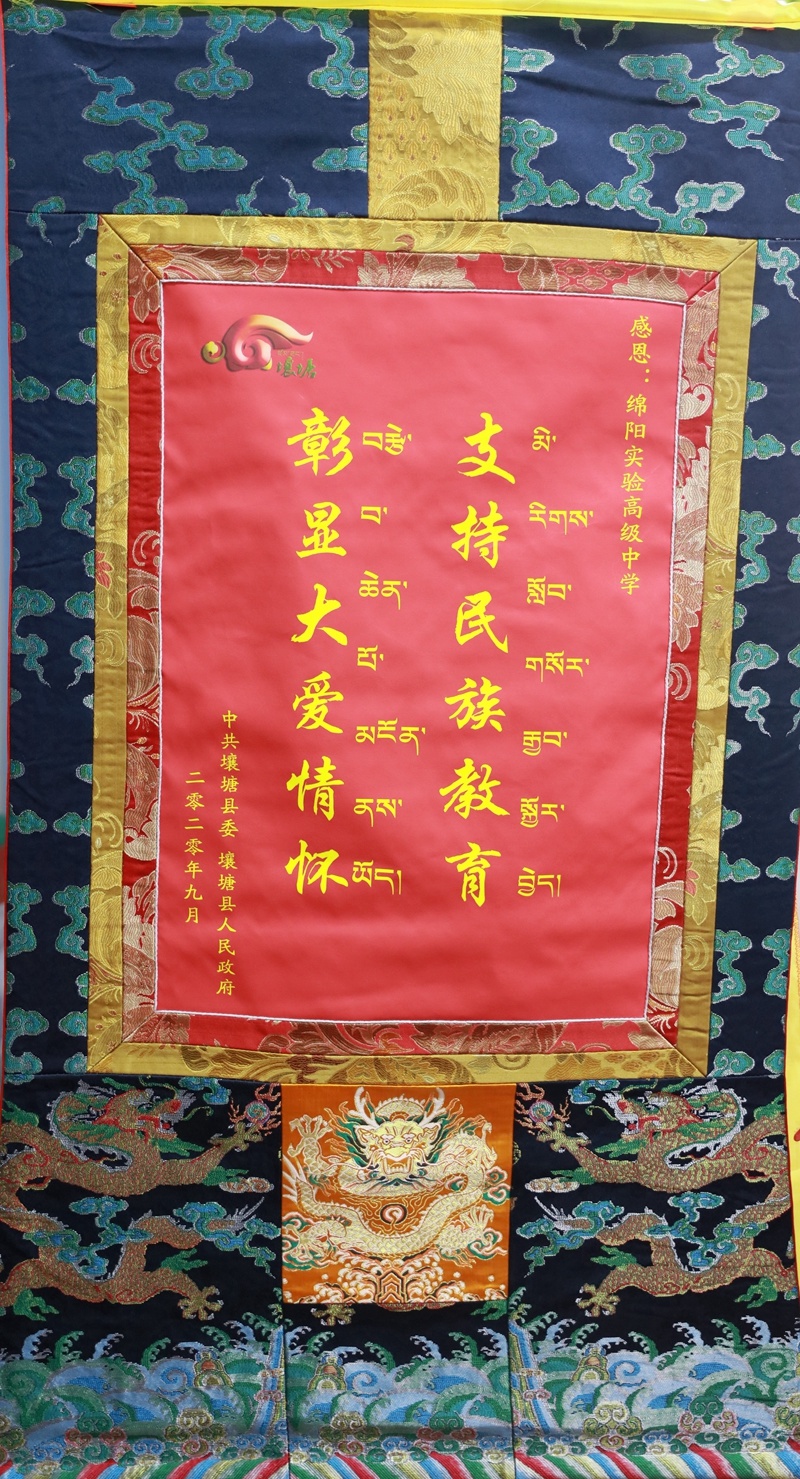 感恩：绵阳实验高级中学
མི་རིགས་སློབ་གསོར་རྒྱབ་སྐྱོར་བྱེད།
支持民族教育
བརྩེ་བ་ཆེན་པོ་མངོན་ནས་ཡོད།
彰显大爱情怀
中共壤塘县委 壤塘县人民政府
二零二零年九月
壤塘